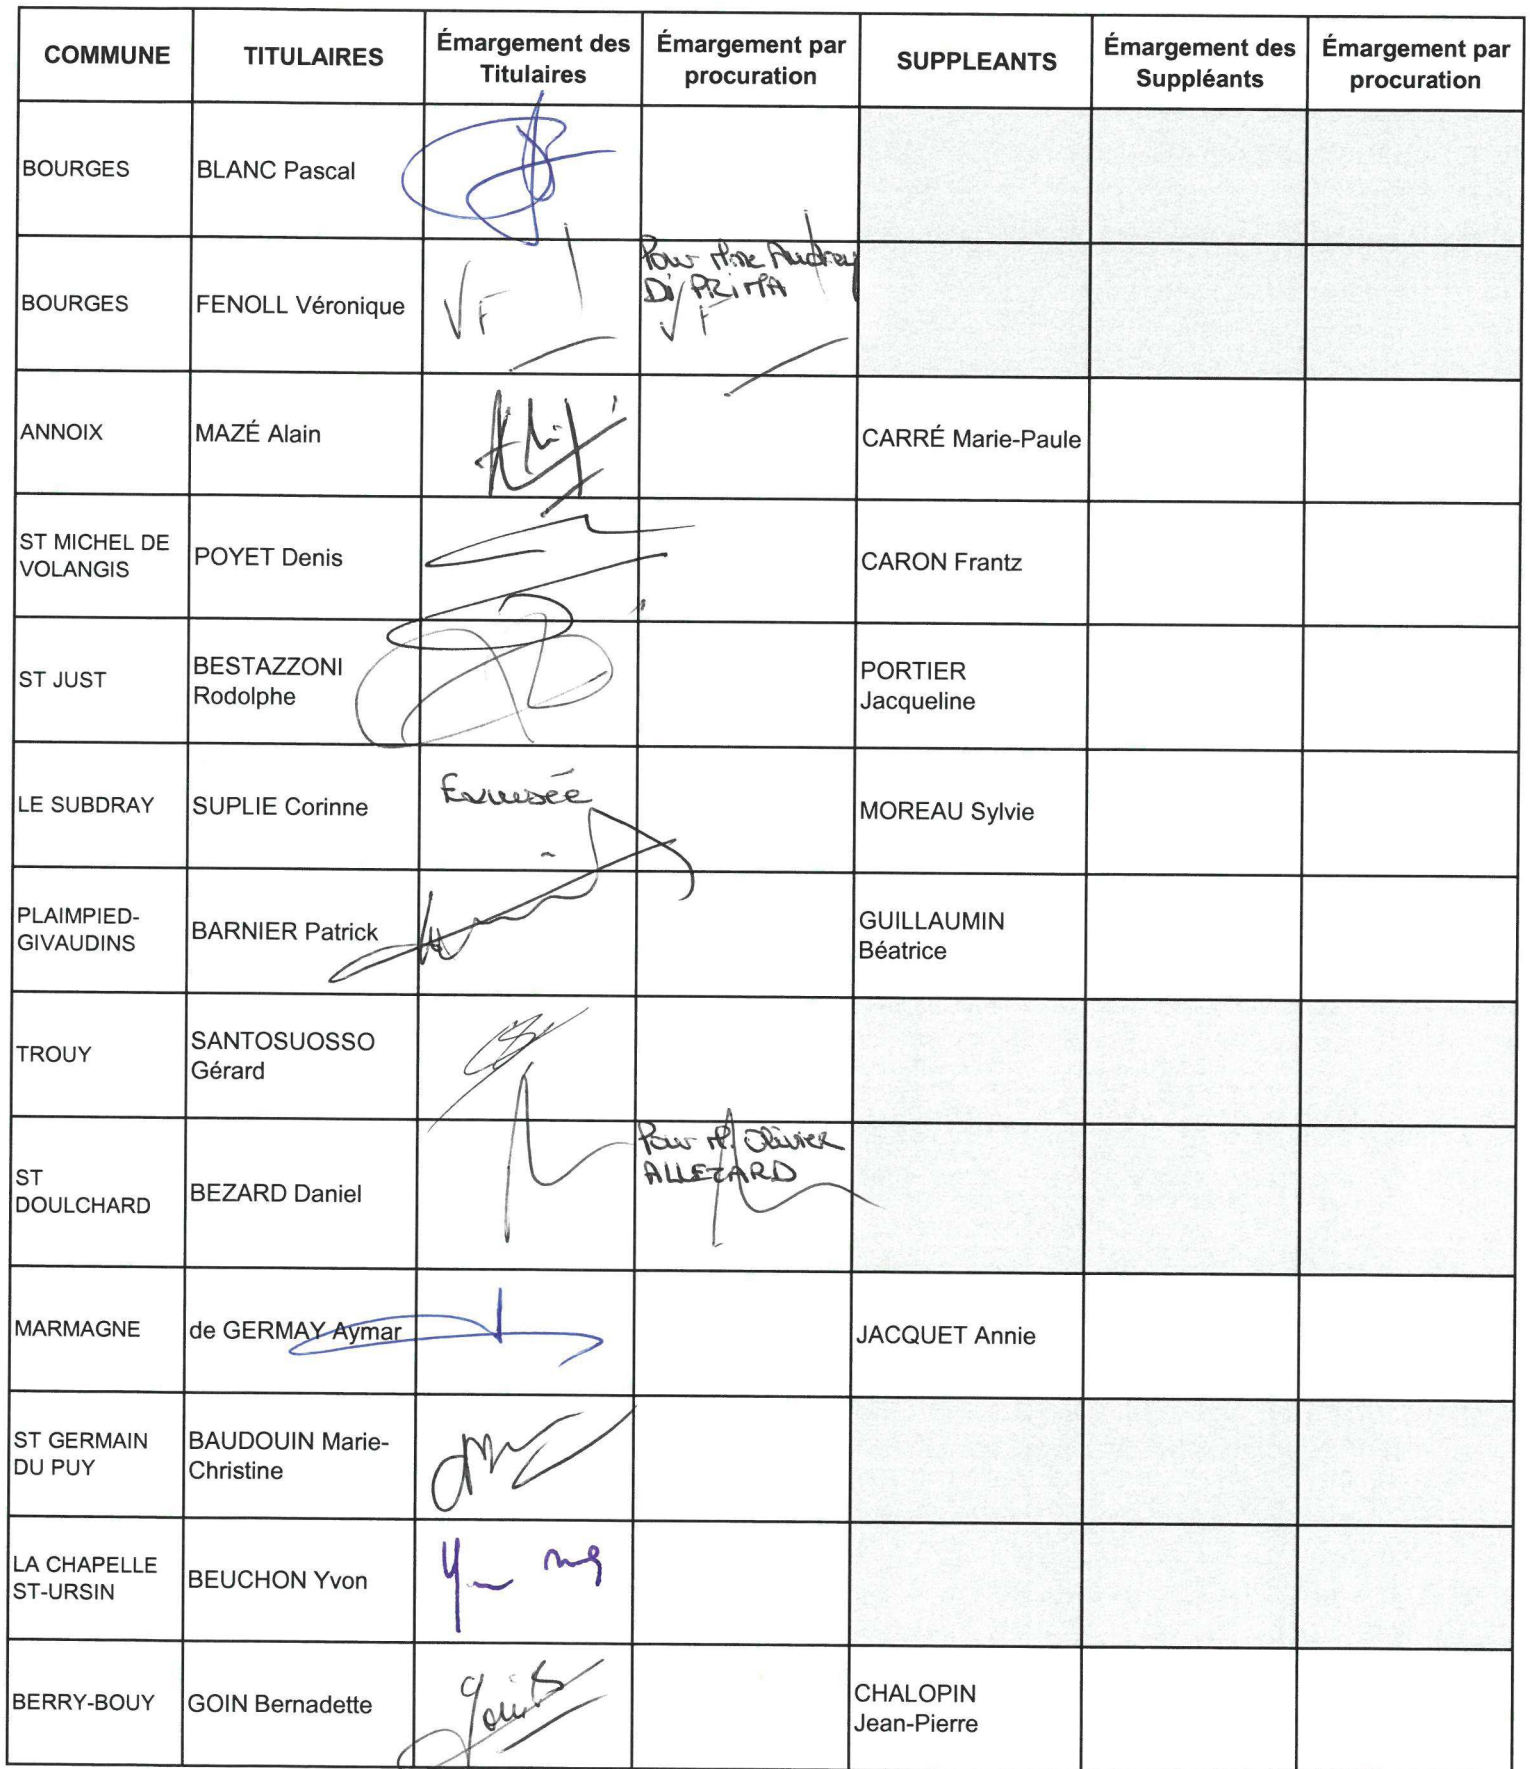 COMMUNE
TITULAIRES
Émargement des
Titulaires
Émargement par
procuration
SUPPLEANTS
Émargement des
Suppléants
Émargement par
procuration
BOURGES
BLANC Pascal
BOURGES
FENOLL Véronique
VF
Pour Mme Audrey
Di PRIMA
VF
ANNOIX
MAZÉ Alain
CARRÉ Marie-Paule
ST MICHEL DE
VOLANGIS
POYET Denis
CARON Frantz
ST JUST
BESTAZZONI
Rodolphe
PORTIER
Jacqueline
LE SUBDRAY
SUPLIE Corinne
Excusée
MOREAU Sylvie
PLAIMPIED-
GIVAUDINS
BARNIER Patrick
GUILLAUMIN
Béatrice
TROUY
SANTOSUOSSO
Gérard
ST
DOULCHARD
BEZARD Daniel
Pour M. Olivier
ALLEZARD
MARMAGNE
de GERMAY Aymar
JACQUET Annie
ST GERMAIN
DU PUY
BAUDOUIN Marie-
Christine
LA CHAPELLE
ST-URSIN
BEUCHON Yvon
BERRY-BOUY
GOIN Bernadette
CHALOPIN
Jean-Pierre